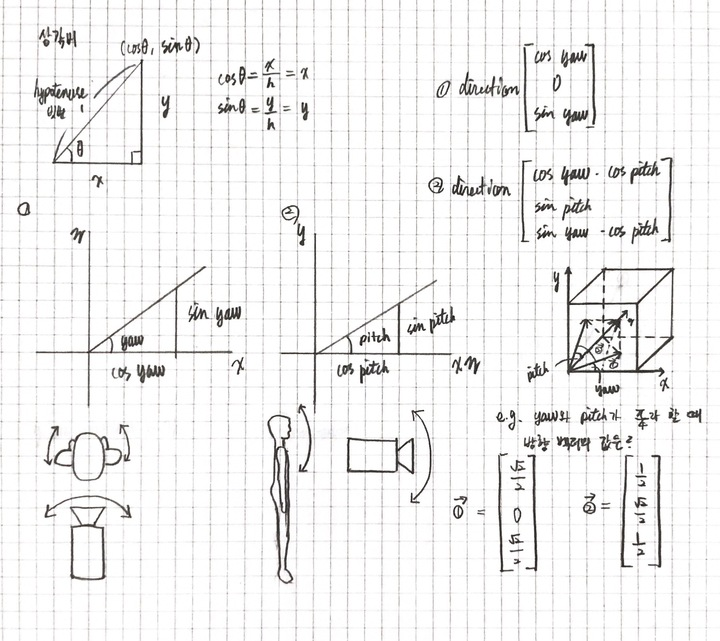 삼각비
(cosθ, sinθ)
hypotenuse
빗변 1
y
θ
x
cosθ = x/h = x
sinθ = y/h = y
① direction [cos yaw
0
sin yaw]
② direction [cos yaw · cos pitch
sin pitch
sin yaw · cos pitch]
①
sin yaw
yaw
cos yaw
x
②
y
sin pitch
pitch
cos pitch
y
pitch
yaw
x
e.g. yaw와 pitch가 π/4라 할 때
방향 벡터의 값은?
① = [√2/2
0
√2/2]
② = [1/2
√2/2
1/2]